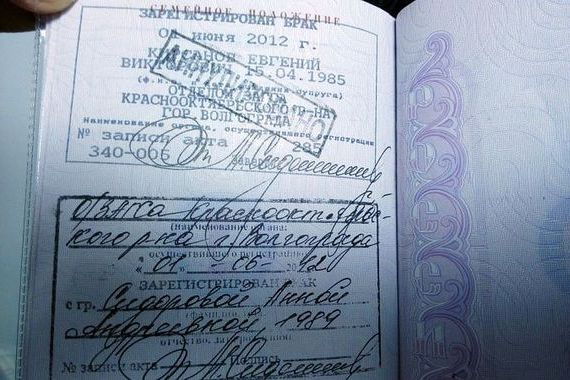 СЕМЕЙНОЕ ПОЛОЖЕНИЕ
ЗАРЕГИСТРИРОВАН БРАК
01 ИЮНЯ 2012 г.
ЕВГЕНИЙ
15.04.1985
ОТДЕЛОМ
КРАСНООКТЯБРЬСКОГО Р-НА
ГОР. ВОЛГОГРАДА
Наименование органа, осуществившего регистрации
№ записи акта 285
340-006 Заверил
О/ЗАГСа Краснооктябрьс-
кого р-на г. Волгограда
(наименование органа:
осуществившего регистрацию)
"01" - 06 - 2012
ЗАРЕГИСТРИРОВАН БРАК
с гр. Сидоровой Анной
Андреевной, 1989
отчество, дата рожд.
№ записи акта Подпись